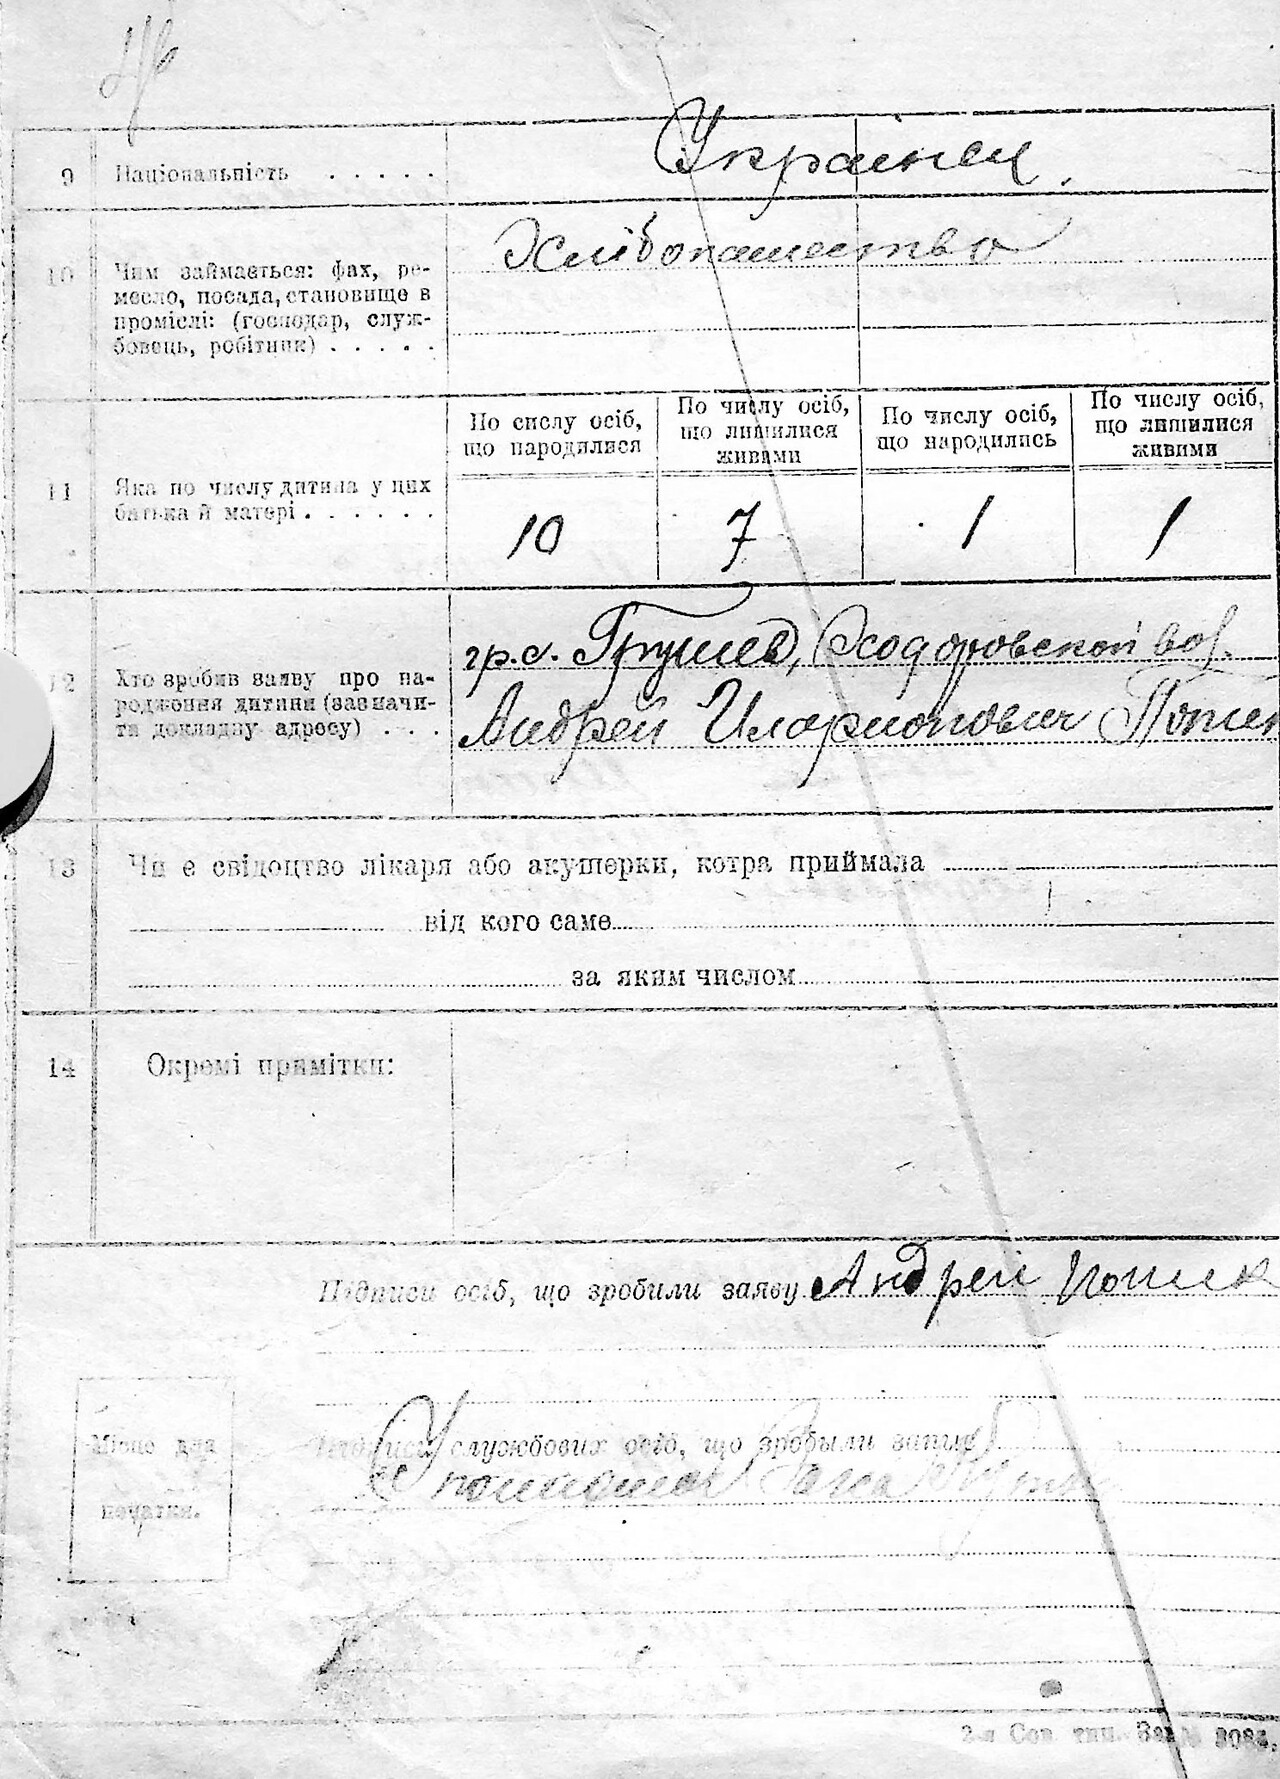 9 Національність . . . . . Украинец
10 Чим займається: фах, ре- Хлібопашество
месло, посада, становище в
проміслі: (господар, служ-
бовець, робітник) . . . . .
По числу осіб, що народилися
По числу осіб, що лишилися живими
По числу осіб, що народились
По числу осіб, що лишилися живими
11 Яка по числу дитина у цих
батька й матері . . . . . . 10 7 1 1
12 Хто зробив заяву про на- гр. с. Грушев, Ходоровской вол.
родження дитини (зазначи- Андрей Иларионович
ти докладну адресу) . . .
13 Чи є свідоцтво лікаря або акушерки, котра приймала
від кого саме
за яким числом
14 Окремі примітки:
Підписи осіб, що зробили заяву Андрей
Місце для
печатки.
Підписи службових осіб, що зробыли запис
2-я Сов. тип. Зак.